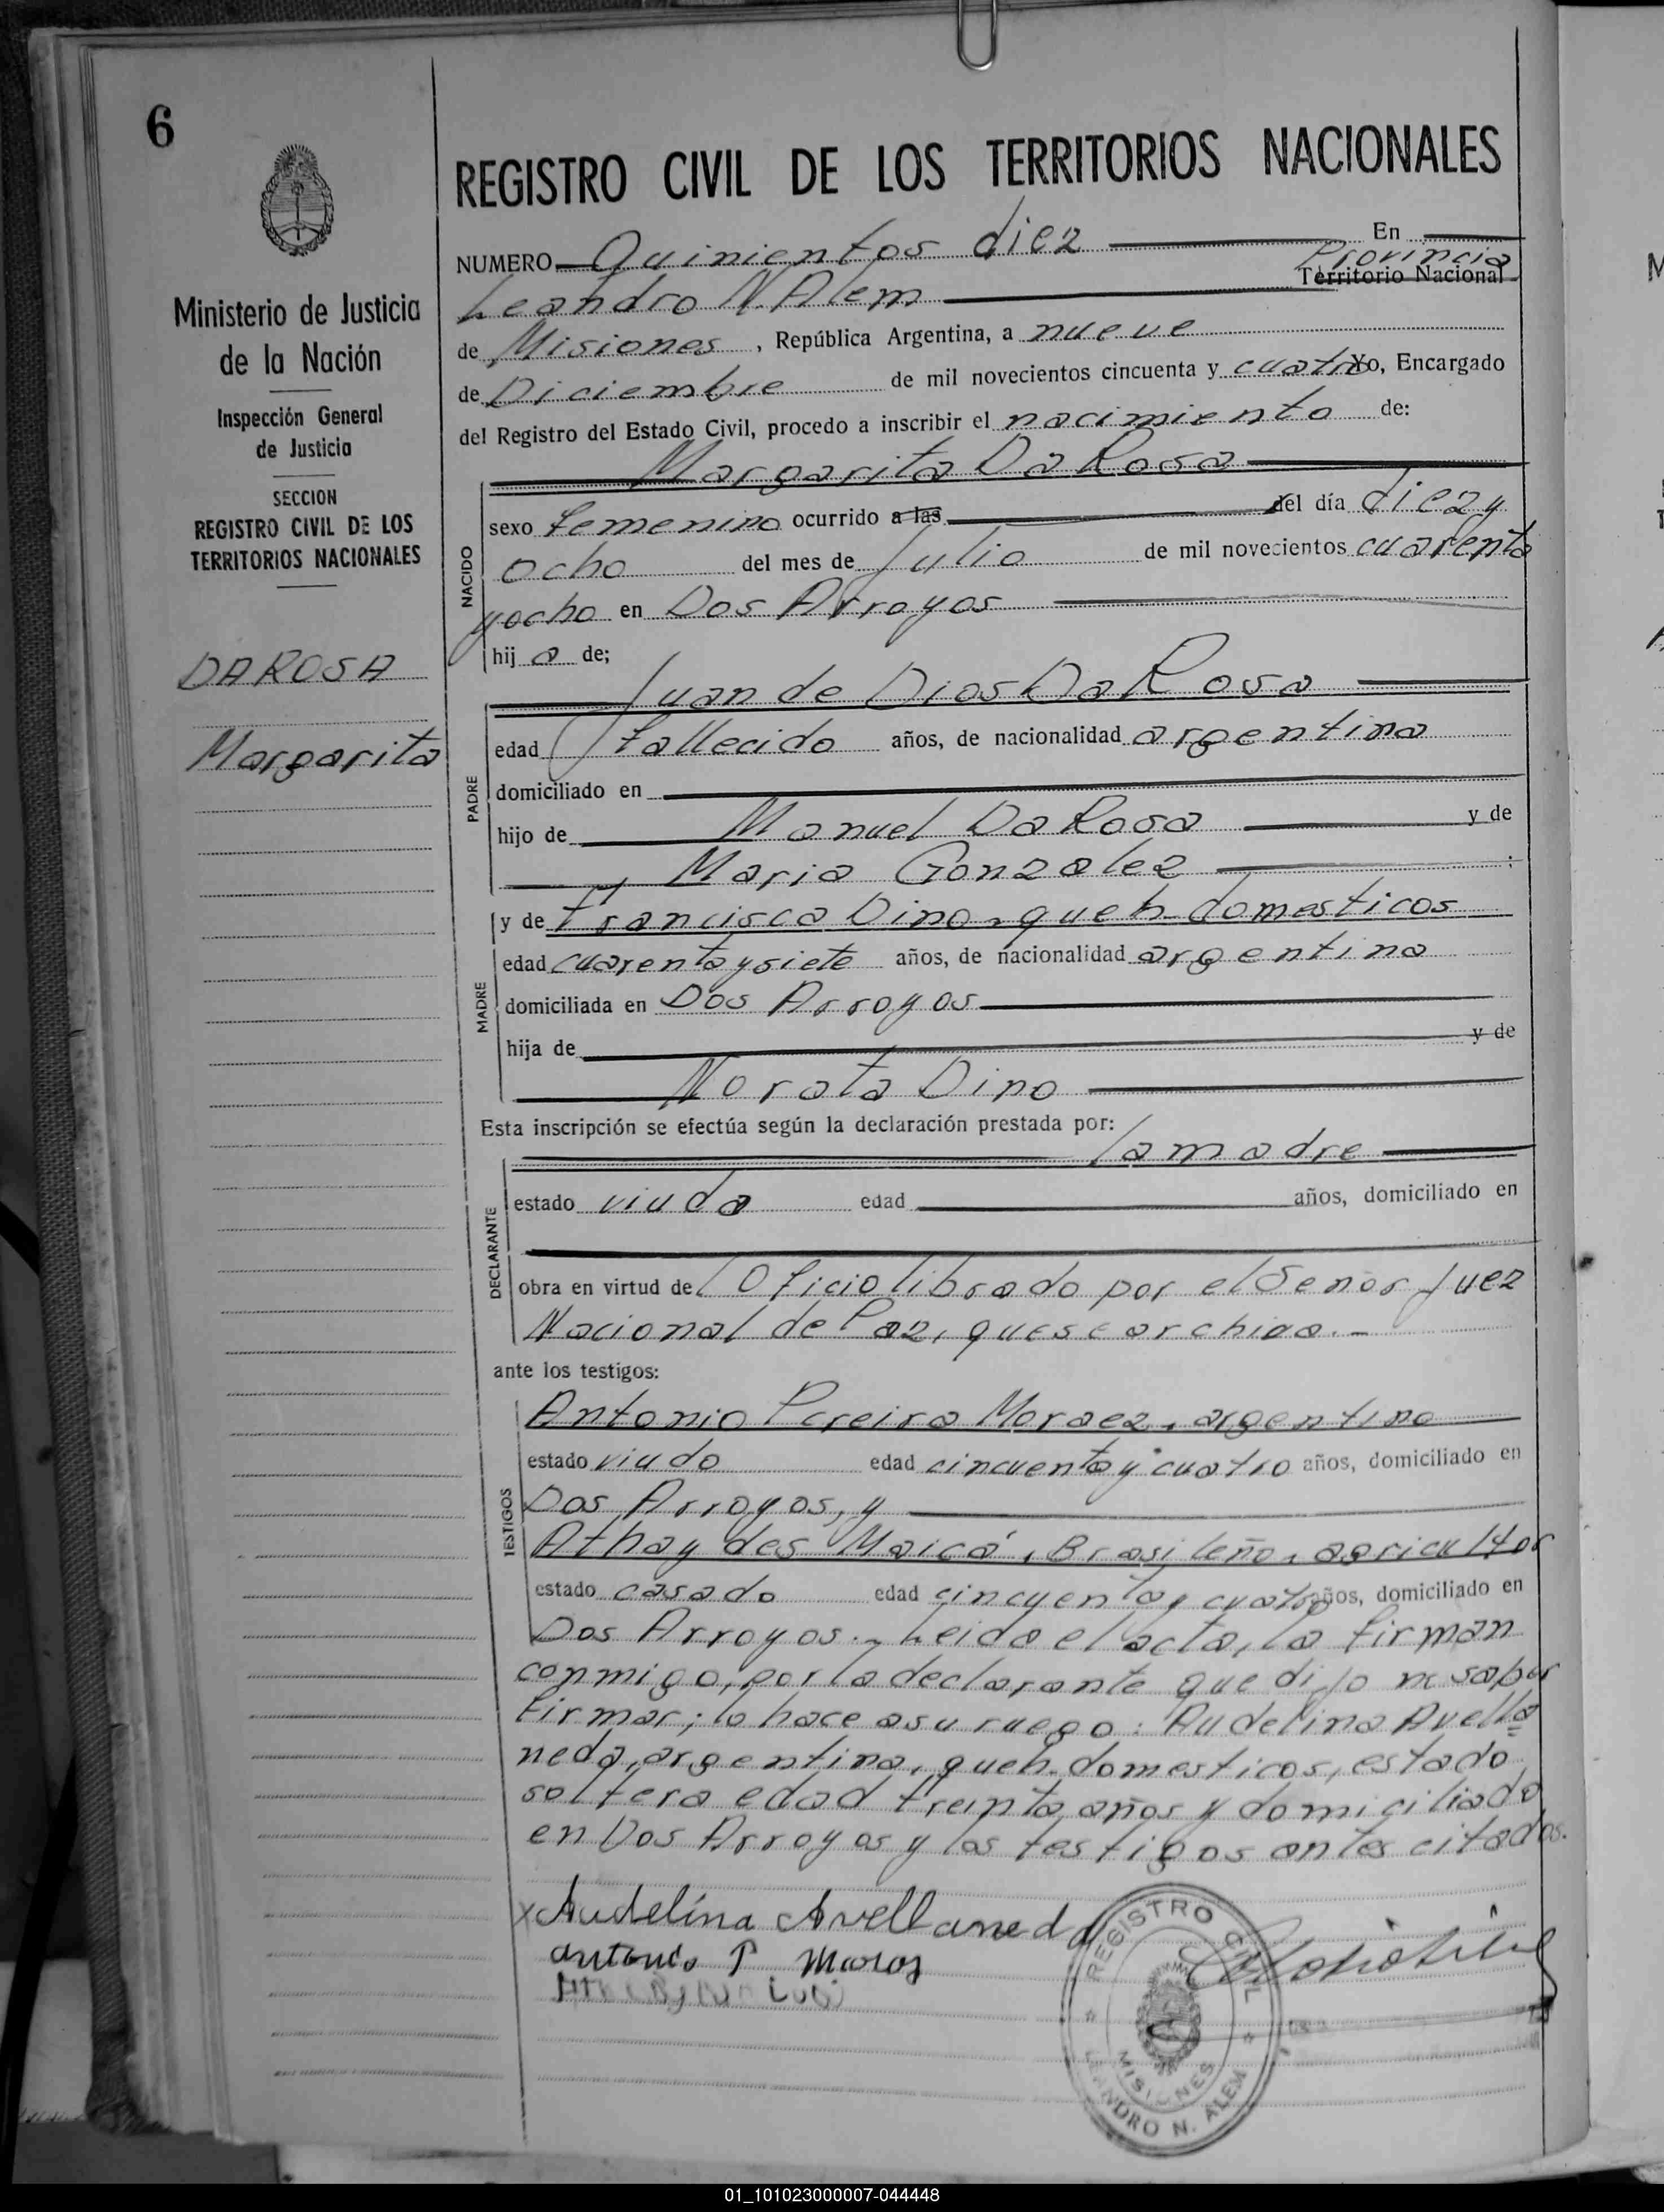 6
REGISTRO CIVIL DE LOS TERRITORIOS NACIONALES
NUMERO Quinientos diez En
Provincia
Leandro N. Alem Territorio Nacional
de Misiones, República Argentina, a nueve
de Diciembre de mil novecientos cincuenta y cuatro Yo, Encargado
del Registro del Estado Civil, procedo a inscribir el nacimiento de:
Margarita Da Rosa
NACIDO
sexo femenino ocurrido a las del día diez y
ocho del mes de Julio de mil novecientos cuarenta
y ocho en Dos Arroyos
hij a de;
Juan de Dios Da Rosa
PADRE
edad fallecido años, de nacionalidad argentina
domiciliado en
hijo de Manuel Da Rosa y de
Maria Gonzalez ;
MADRE
y de Francisca Dino, queh. domesticos
edad cuarenta y siete años, de nacionalidad argentina
domiciliada en Dos Arroyos
hija de y de
Norata Dino
Esta inscripción se efectúa según la declaración prestada por:
la madre
DECLARANTE
estado viuda edad años, domiciliado en
obra en virtud de l Oficio librado por el Señor Juez
Nacional de Paz, que se archiva.-
ante los testigos:
Antonio Pereira Moraez, argentino
TESTIGOS
estado viudo edad cincuenta y cuatro años, domiciliado en
Dos Arroyos, y
Athay des Maicá, Brasileño, agricultor
estado casado edad cincuenta y cuatro años, domiciliado en
Dos Arroyos.- Leida el acta, la firman
conmigo, por la declarante que dijo no saber
firmar; lo hace a su ruego: Audelina Avella=
neda, argentina, queh. domesticos, estado
soltera edad treinta años y domiciliada
en Dos Arroyos y los testigos antes citados.
x Audelína Avellaneda
antonio P
REGISTRO CIVIL
MISIONES
LEANDRO N. ALEM
Ministerio de Justicia
de la Nación
Inspección General
de Justicia
SECCION
REGISTRO CIVIL DE LOS
TERRITORIOS NACIONALES
DA ROSA
Margarita
01_101023000007-044448